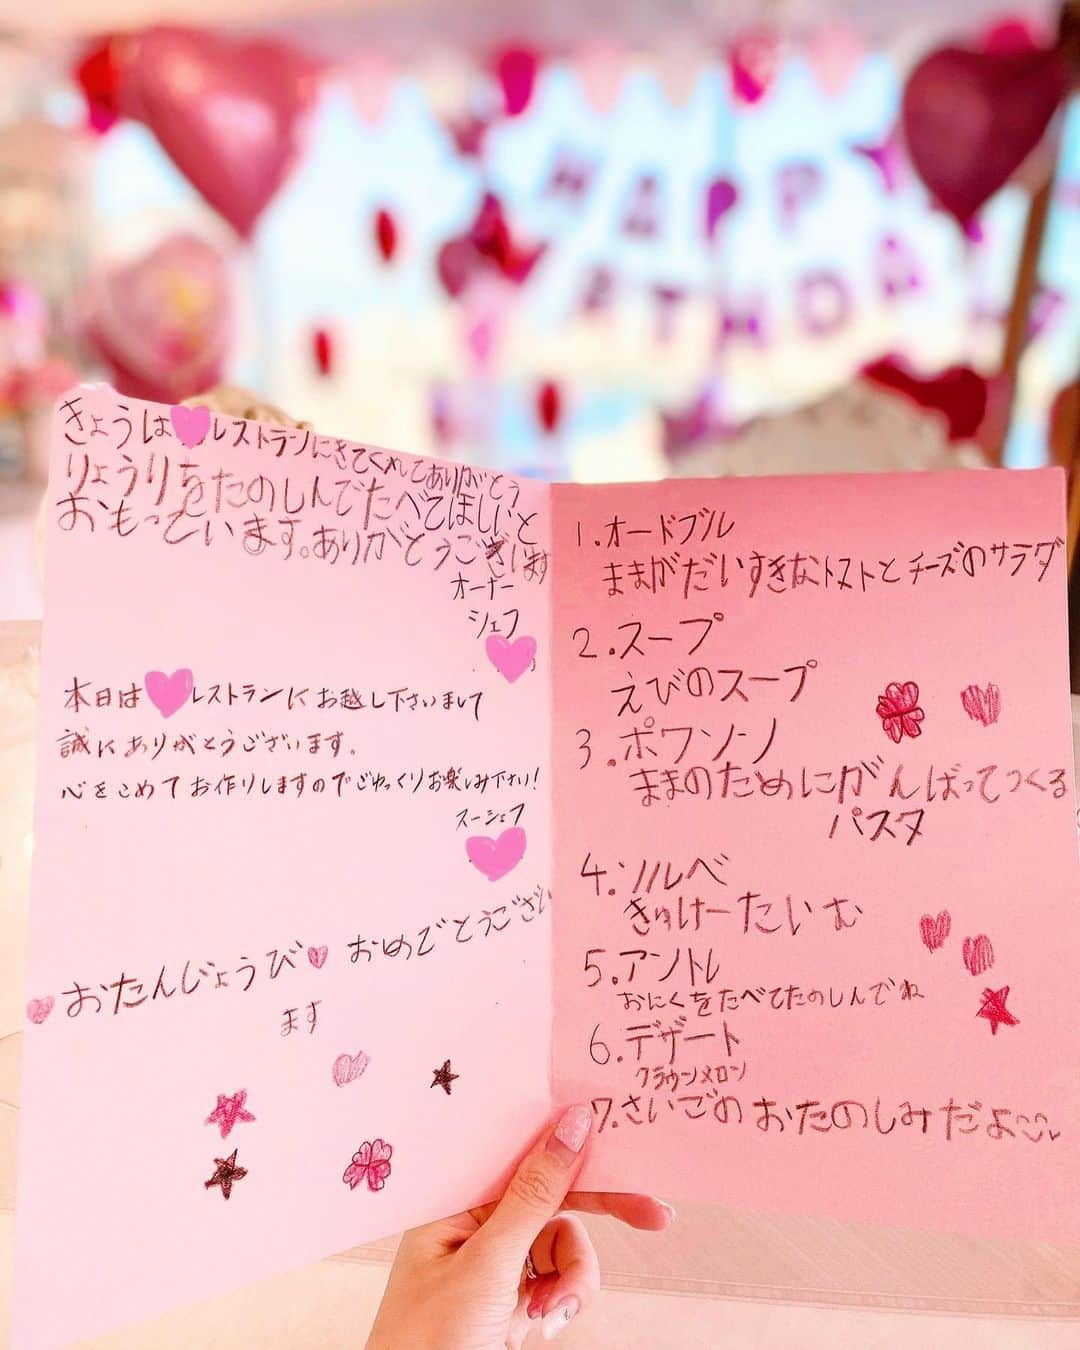 HAPPY
BIRTHDAY
きょうは レストランにきてくれてありがとう
りょうりをたのしんでたべてほしいと
おもっています。ありがとうございます
オーナー
シェフ
本日は レストランにお越し下さいまして
誠にありがとうございます。
心をこめてお作りしますのでごゆっくりお楽しみ下さい!
スーシェフ
おたんじょうび おめでとうござい
ます
1.オードブル
ままがだいすきなトマトとチーズのサラダ
2.スープ
えびのスープ
3.ポワソン
ままのためにがんばってつくる
パスタ
4.ソルベ
きゅけーたいむ
5.アントレ
おにくをたべてたのしんでね
6.デザート
クラウンメロン
7.さいごのおたのしみだよ